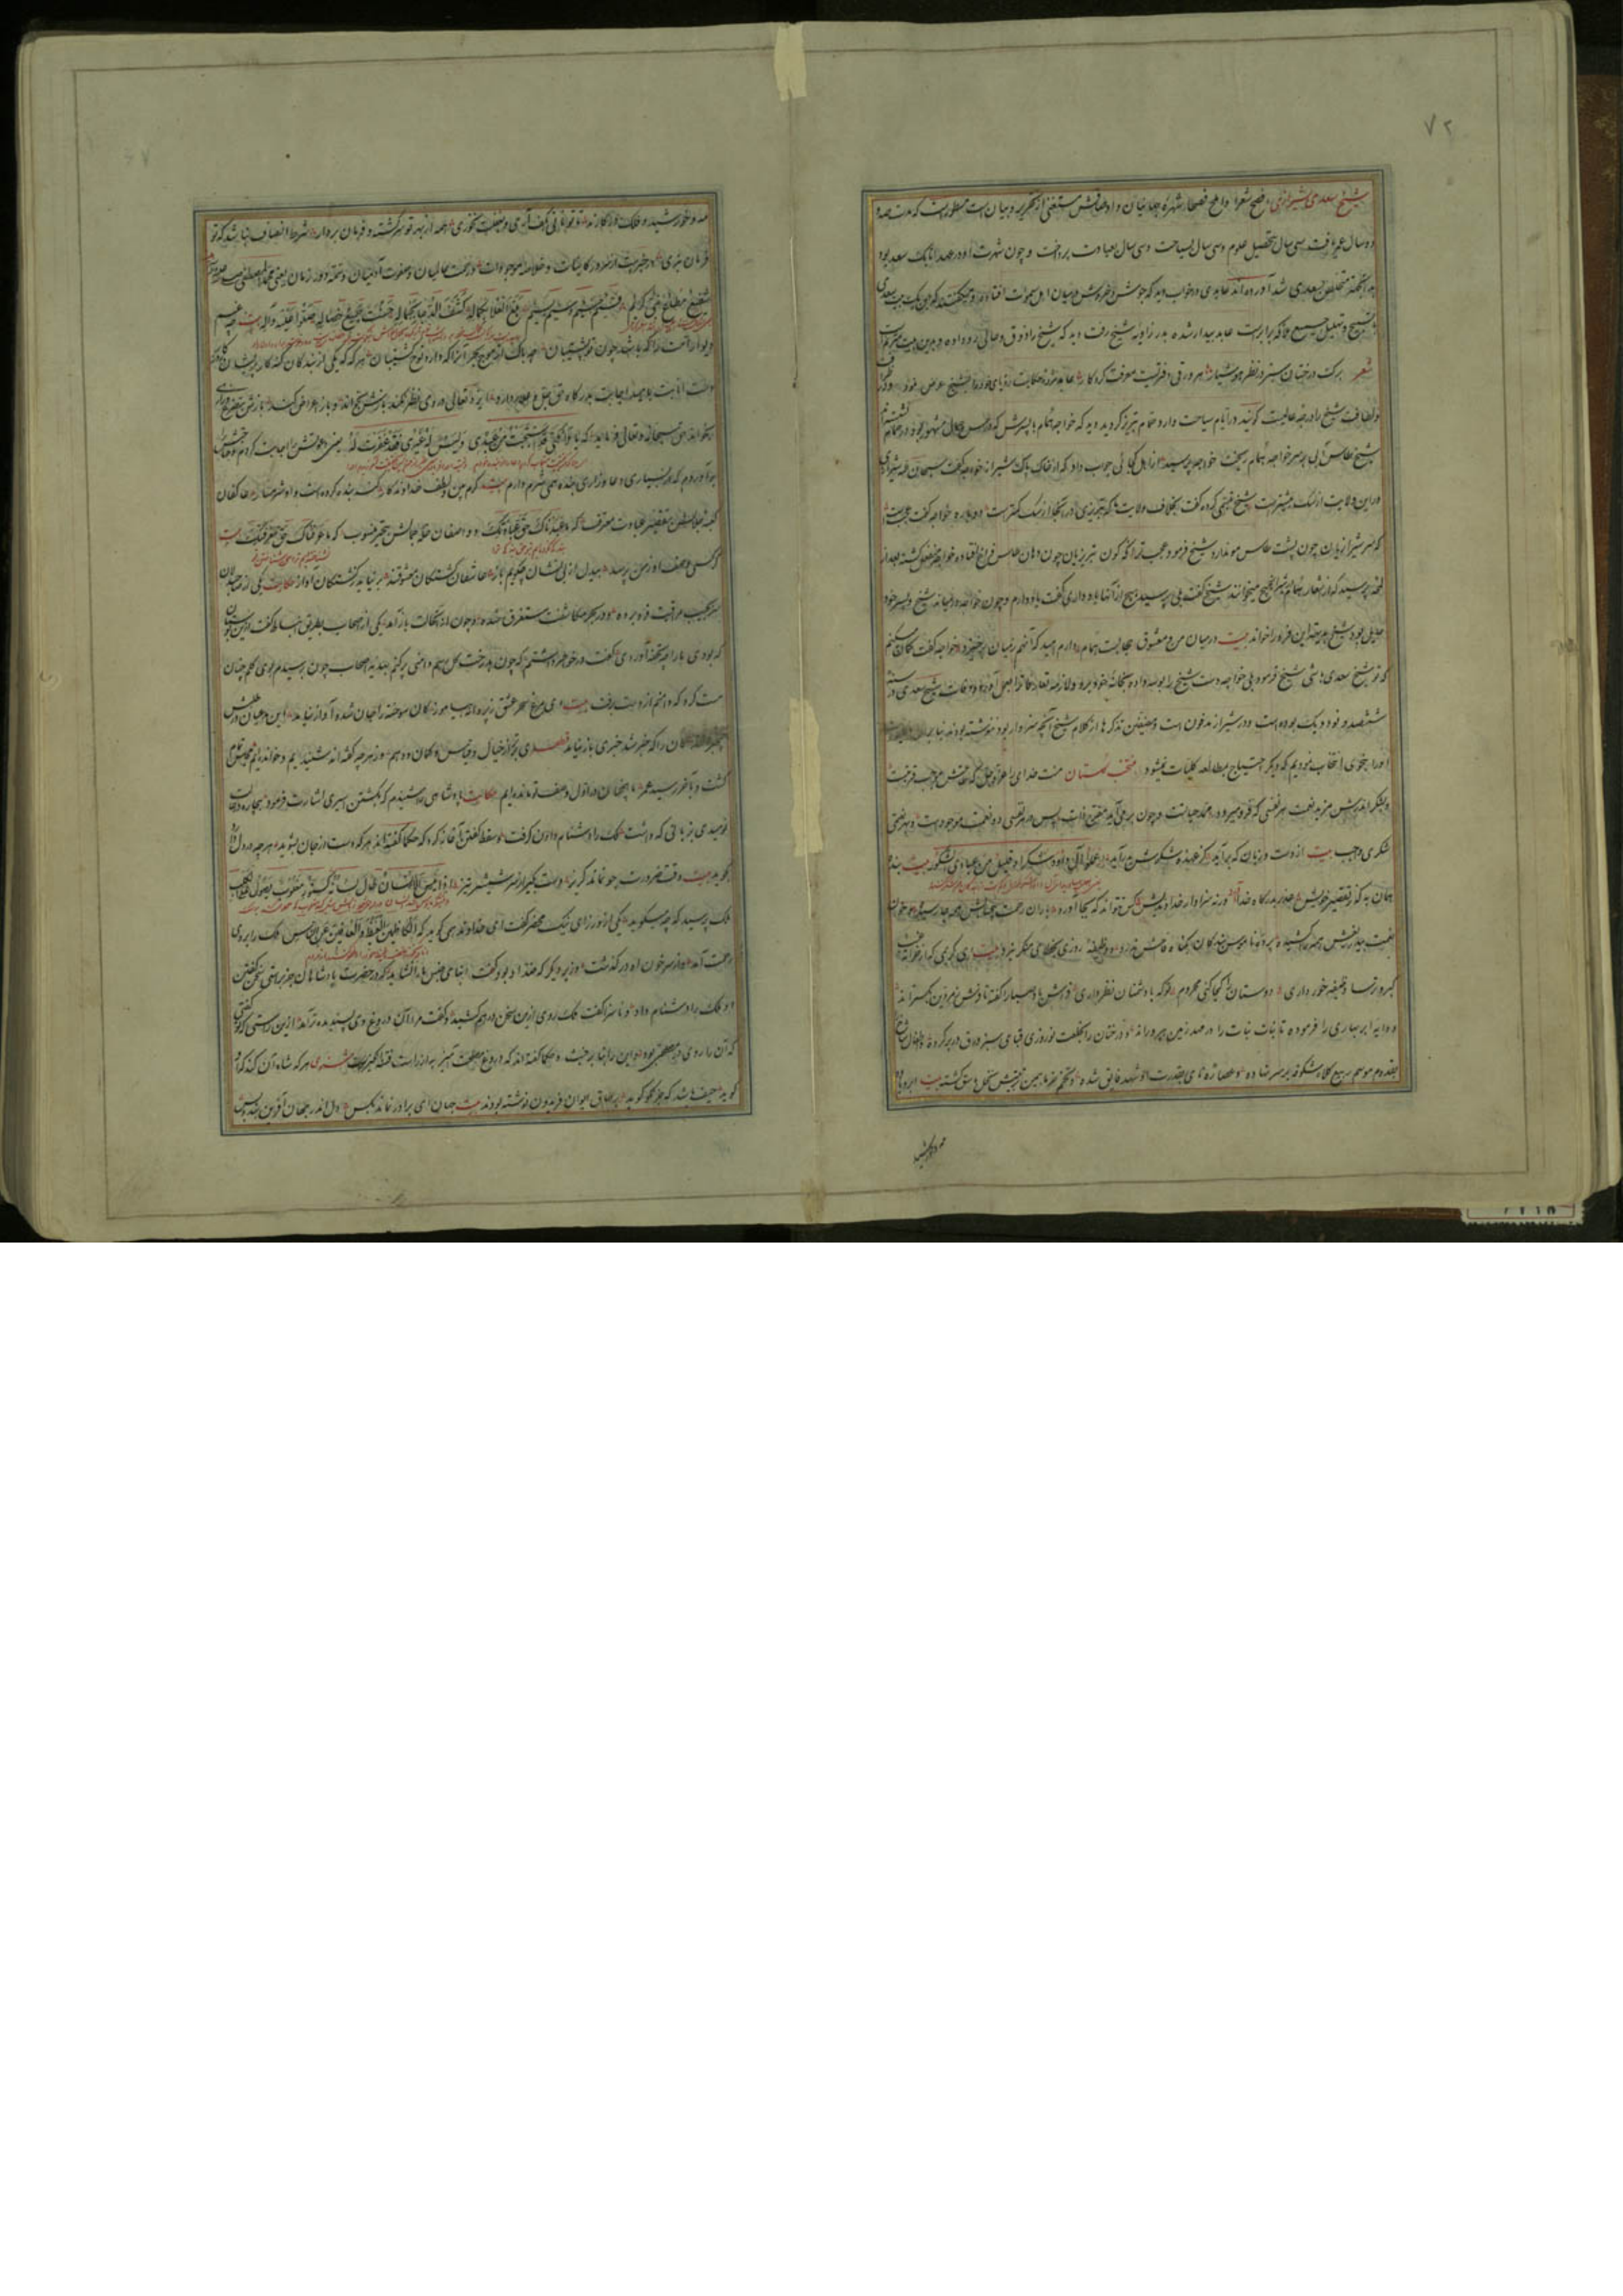 ۷۲
شیخ سعدی شیرازی افصح شعرا و املح فصحا شهره جهانیان و اوصافش مستغنی از تحریر و بیان است مسطور است که مدت صد و
دو سال عمر یافت سی سال بتحصیل علوم و سی سال بسیاحت و سی سال بعبادت پرداخت و چون شهرت او در عهد اتابک سعد بود
متخلص بسعدی شد آورده‌اند عابدی در خواب دید که جوش و خروش در میان اهل سموات افتاده و میگفتند که این یک بیت سعدی
با تسبیح و تهلیل جمیع ملائکه برابر است عابد بیدار شده بدر زاویه شیخ رفت دید که شیخ را ذوق و حالی رو داده و بدین بیت مترنم است
شعر برگ درختان سبز در نظر هوشیار هر ورقی دفتریست معرفت کردگار عابد حکایت رؤیای خود را بشیخ عرض نمود
و لطافت شیخ را درجه عالیست گویند در ایام سیاحت وارد حمام تبریز گردید دید که خواجه همام با پسرش که در حسن و جمال مشهور بود در حمام
شیخ طاس آبی بر سر خواجه همام ریخت خواجه پرسید از اهل کجائی جواب داد که از خاک پاک شیراز خواجه گفت سبحان الله شیرازی
در این ولایت از سگ بیشتر است شیخ تبسمی کرد گفت بخلاف ولایت ما که تبریزی در آنجا از سگ کمتر است دوباره خواجه گفت عجبست
که سر شیرازیان چون پشت طاس مو ندارد شیخ فرمود عجب‌تر آنکه کون تبریزیان چون دهان طاس فراخ افتاده خواجه منفعل گشته بعد از
لمحه پرسید که از اشعار همام در شیراز هیچ میخوانند شیخ گفت بلی پرسید هیچ از آنها یاد داری گفت یاد دارم و چون خواجه در میانه شیخ و پسر خود
حایل بود شیخ این فرد را خواند بیت در میان من و معشوق حجابست همام دارم امید که آنهم ز میان برخیزد خواجه گفت گمان میکنم
که تو شیخ سعدی باشی شیخ فرمود بلی خواجه دست شیخ را بوسه داده بخانه خود برد و لوازم تعارفات بعمل آورد وفات شیخ سعدی در سنه
ششصد و نود و یک بوده است و در شیراز مدفون است مصنفین تذکره‌ها از کلام شیخ آنچه سزاوار بود ننوشته بودند بنابر
او را بنحوی انتخاب نمودیم که دیگر احتیاج بمطالعه کلیات نمیشود منتخب گلستان منت خدای را عز و جل که طاعتش موجب قربتست
و بشکر اندرش مزید نعمت هر نفسی که فرو میرود ممد حیاتست و چون بر می‌آید مفرح ذات پس در هر نفسی دو نعمت موجود است و بهر نعمتی
شکری واجب بیت از دست و زبان که برآید کز عهده شکرش بدرآید اعملوا آل داود شکرا و قلیل من عبادی الشکور بیت بنده
همان به که ز تقصیر خویش عذر بدرگاه خدا آورد ورنه سزاوار خداوندیش کس نتواند که بجا آورد باران رحمت بیحسابش همه جا رسیده و خوان
نعمت بیدریغش همه جا کشیده پرده ناموس بندگان بگناه فاحش ندرد و وظیفه روزی بخطای منکر نبرد بیت ای کریمی که از خزانه غیب
گبر و ترسا وظیفه خور داری دوستان را کجا کنی محروم تو که با دشمنان نظر داری فراش باد صبا را گفته تا فرش زمردین بگستراند
و دایه ابر بهاری را فرموده تا بنات نبات را در مهد زمین بپروراند و درختان را بخلعت نوروزی قبای سبز ورق در بر کرده و اطفال شاخ را
بقدوم موسم ربیع کلاه شکوفه بر سر نهاده و عصاره نای بقدرت او شهد فایق شده و تخم خرما بیمن تربیتش نخل باسق گشته بیت ابر و باد
مه و خورشید
مه و خورشید و فلک در کارند تا تو نانی بکف آری و بغفلت نخوری همه از بهر تو سرگشته و فرمان بردار شرط انصاف نباشد که تو
فرمان نبری در خبر است از سرور کاینات و خلاصه موجودات و رحمت عالمیان و صفوت آدمیان و تتمه دور زمان یعنی محمد المصطفی
شفیع مطاع نبی کریم قسیم جسیم وسیم بلغ العلی بکماله کشف الدجی بجماله حسنت جمیع خصاله صلوا علیه و آله بیت چه غم
دیوار امت را که باشد چون تو پشتیبان چه باک از موج بحر آنرا که دارد نوح کشتیبان هرگه که یکی از بندگان گنه‌کار پریشان روزگار
دست انابت بامید اجابت بدرگاه حق جل و علا بردارد ایزد تعالی در وی نظر نکند بازش بخواند او باز اعراض کند بازش بتضرع و زاری
بخواند حق سبحانه و تعالی فرماید که یا ملائکتی قد استحییت من عبدی و لیس له غیری فقد غفرت له یعنی دعوتش را اجابت کردم و حاجتش
برآوردم که از بسیاری دعا و زاری بنده همی شرم دارم بیت کرم بین و لطف خداوندگار گنه بنده کرده است و او شرمسار عاکفان
کعبه جلالش بتقصیر عبادت معترف که ما عبدناک حق عبادتک و واصفان حلیه جمالش بتحیر منسوب که ما عرفناک حق معرفتک بیت
گر کسی وصف او ز من پرسد بیدل از بی نشان چگوید باز عاشقان کشتگان معشوقند بر نیاید ز کشتگان آواز حکایت یکی از صاحبدلان
سر بجیب مراقبت فرو برده و در بحر مکاشفت مستغرق شده چون از آنحالت باز آمد یکی از اصحاب بطریق انبساط گفت ازین بوستان
که بودی ما را چه تحفه آوردی گفت در خاطر داشتم که چون بدرخت گل رسم دامنی پر کنم هدیه اصحاب چون برسیدم بوی گلم چنان
مست کرد که دامنم از دست برفت بیت ای مرغ سحر عشق ز پروانه بیاموز کان سوخته را جان شد و آواز نیامد این مدعیان در طلبش
بیخبرانند کان را که خبر شد خبری باز نیامد ای برتر از خیال و قیاس و گمان و وهم وز هر چه گفته‌اند شنیدیم و خوانده‌ایم مجلس تمام
گشت و بآخر رسید عمر ما همچنان در اول وصف تو مانده‌ایم حکایت پادشاهی را شنیدم که بکشتن اسیری اشارت فرمود بیچاره در حالت
نومیدی بزبانی که داشت ملک را دشنام دادن گرفت و سقط گفتن آغاز کرد که حکما گفته‌اند هر که دست از جان بشوید هر چه در دل دارد
بگوید بیت وقت ضرورت چو نماند گریز دست بگیرد سر شمشیر تیز اذا یئس الانسان طال لسانه کسنور مغلوب یصول علی الکلب
ملک پرسید که چه میگوید یکی از وزرای نیک محضر گفت ای خداوند همی گوید که الکاظمین الغیظ و العافین عن الناس ملک را بر وی
رحمت آمد و از سر خون او در گذشت وزیر دیگر که ضد او بود گفت ابنای جنس ما را نشاید که در حضرت پادشاهان جز براستی سخن گفتن
او ملک را دشنام داد و ناسزا گفت ملک روی ازین سخن درهم کشید و گفت مرا آن دروغ وی پسندیده‌تر آمد ازین راستی که تو گفتی
که آن را روی در مصلحتی بود و این را بنا بر خبث و حکما گفته‌اند که دروغ مصلحت آمیز به از راست فتنه انگیز هر که شاه آن کند که او
گوید حیف باشد که جز نکو گوید بر طاق ایوان فریدون نوشته بودند بیت جهان ای برادر نماند بکس دل اندر جهان آفرین بند و بس